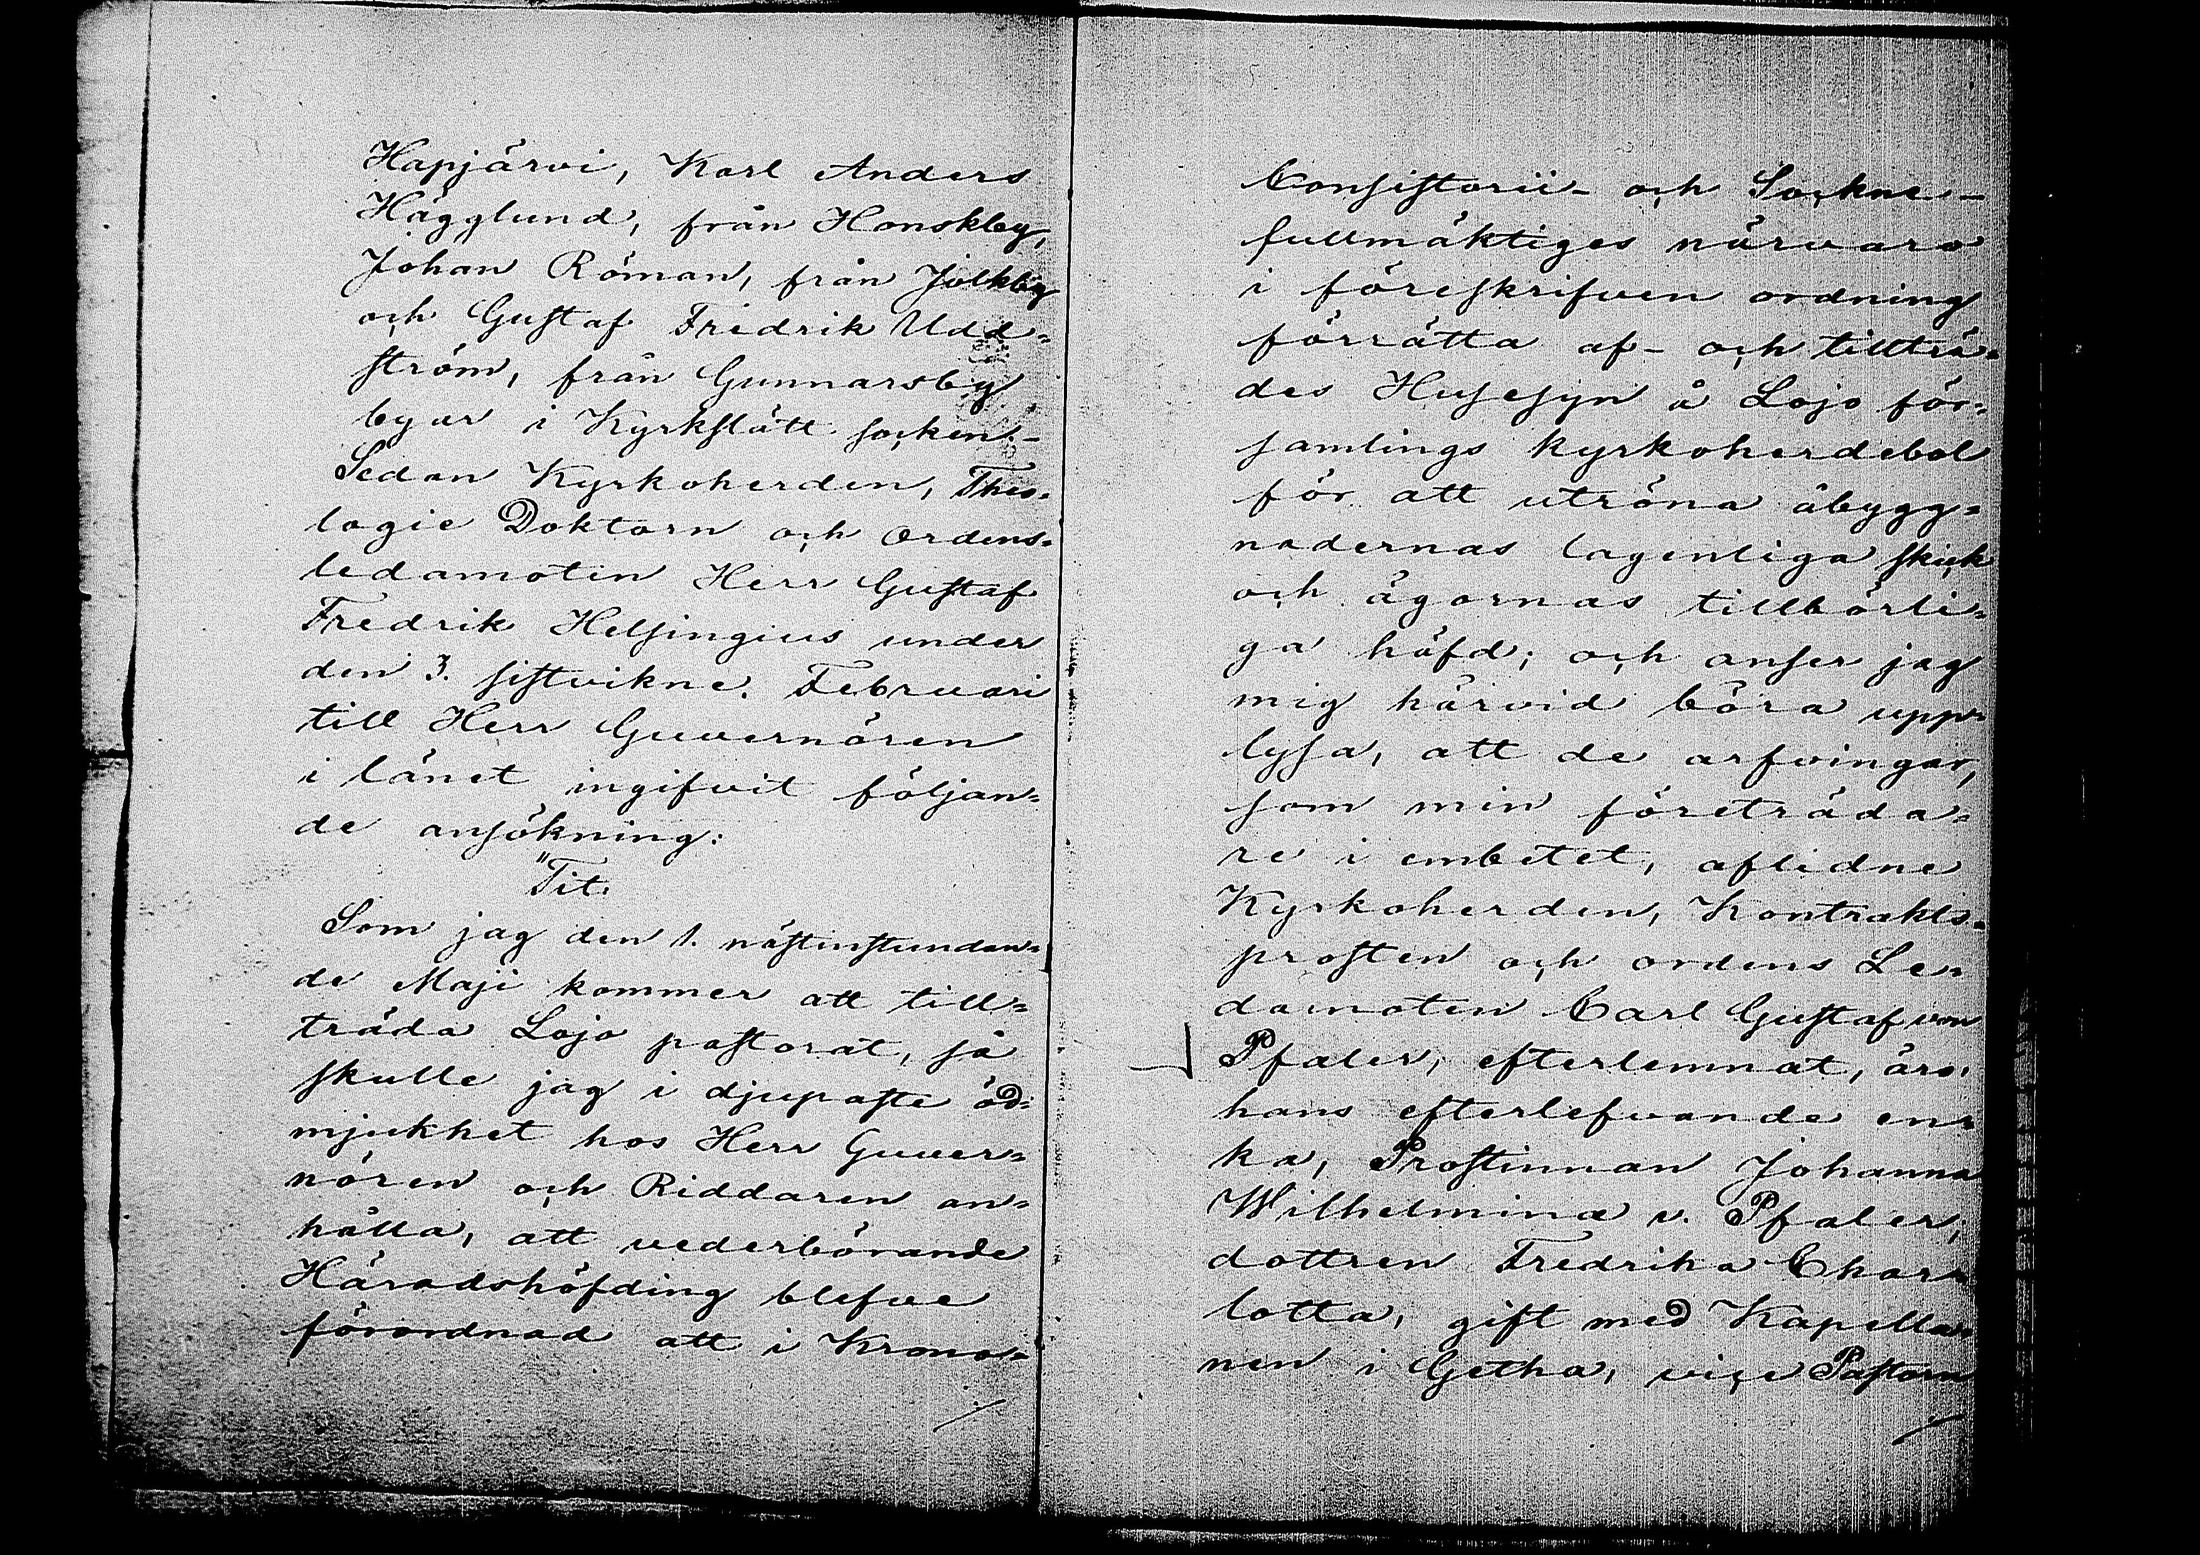 Hapjärvi, Karl Anders
Hägglund, från Honskby,
Johan Röman, från Jolkby
och Gustaf Fridrik Udd=
ström, från Gunnarsby
byar i Kyrkslätt socken.-
Sedan Kyrkoherden, Theo=
logie Doktorn och Ordens=
ledamoten Herr Gustaf
Fredrik Helsingius under
den 3. sistvikne Februari
till Herr Guvernören
i länet ingifvit följan=
de ansökning:
"Tit.
Som jag den 1. nästinstundan=
de Maji kommer att till=
träda Lojo pastorat, så
skulle jag i djupaste öd=
mjukhet hos Herr Guver=
nören och Riddaren an=
hålla, att vederbörande
Häradshöfding blefve
förordnad att i Krono=
Consistorii- och Sockne-
fullmäktiges närvaro
i föreskrifven ordning
förrätta af- och tillträ=
des Husesyn å Lojo för=
samlings kyrkoherdebol
för att utröna åbygg=
nadernas lagenliga skick
och ägornas tillbörli=
ga häfd; och anser jag
mig härvid böra upp=
lysa, att de arfvingar,
som min företräda=
re i embetet, aflidne
Kyrkoherden, Kontrakts=
prosten och ordens Le=
damoten Carl Gustaf von
Pfaler, efterlemnat, äro:
hans efterlefvande en=
ka, Prostinnan Johanna
Wilhelmina v. Pfaler,
dottren Fredrika Char=
lotta, gift med Kapella=
nen i Getha, vice Pastorn